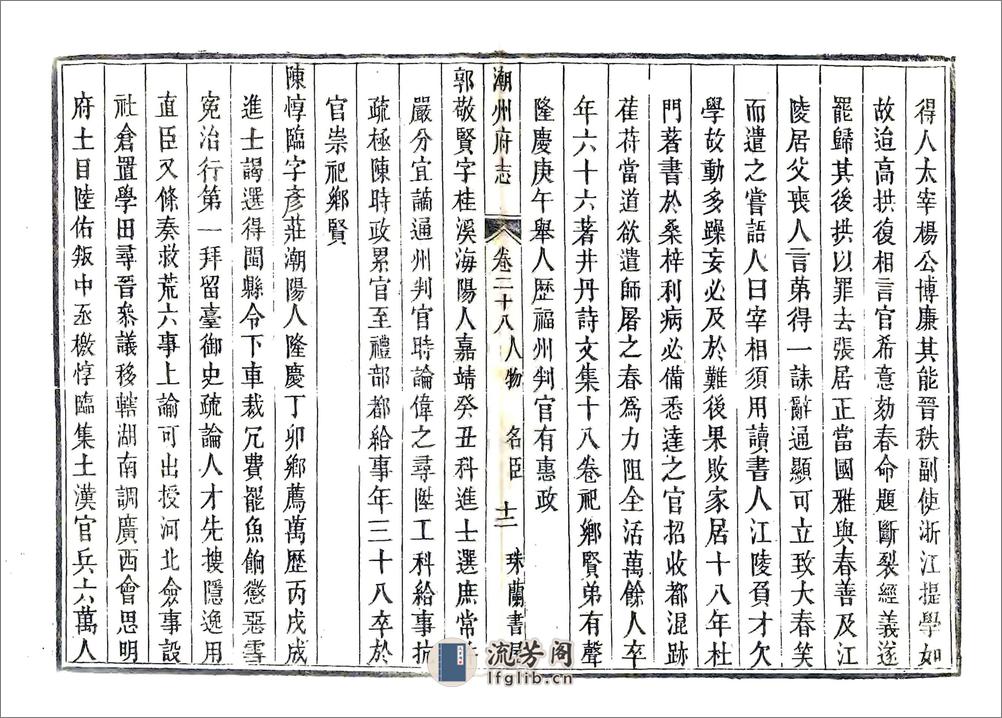 得人太宰楊公博廉其能晉秩副使浙江提學如
故迨高拱復相言官希意劾春命題斷裂經義遂
罷歸其後拱以罪去張居正當國雅與春善及江
陵居父喪人言苐得一誄辭通顯可立致大春笑
而遣之嘗語人曰宰相須用讀書人江陵負才欠
學故動多躁妄必及於難後果敗家居十八年杜
門著書於桑梓利病必備悉達之官招收都混跡
萑苻當道欲遣師屠之春為力阻全活萬餘人卒
年六十六著井丹詩文集十八卷祀鄉賢弟有聲
隆慶庚午舉人歷福州判官有惠政
潮州府志 卷二十八 人物 名臣 十二 珠蘭書屋
郭敬賢字桂溪海陽人嘉靖癸丑科進士選庶常
嚴分宜謫通州判官時論偉之尋陞工科給事抗
疏極陳時政累官至禮部都給事年三十八卒於
官崇祀鄉賢
陳惇臨字彥莊潮陽人隆慶丁卯鄉薦萬歷丙戌成
進士謁選得閩縣令下車裁冗費罷魚餉懲惡雪
冤治行第一拜留臺御史疏論人才先搜隱逸用
直臣又條奏救荒六事上諭可出授河北僉事設
社倉置學田尋晉叅議移轄湖南調廣西會思明
府土目陸佑叛中丞檄惇臨集土漢官兵六萬人
流芳阁
lfglib.cn